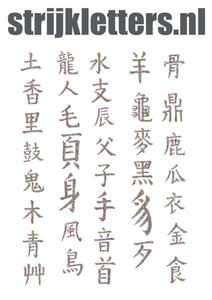 strijkletters.nl
土 龍 水 羊 骨
香 人 支 龜 鼎
里 毛 辰 麥 鹿
鼓 頁 父 黑 瓜
鬼 身 子 豸 衣
木 風 手 歹 金
青 鳥 音 食
艸 首